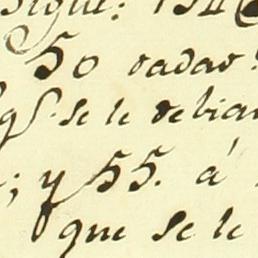 sigue: 154
50 dadas
qs. se le debian
; y 55. á
que se le